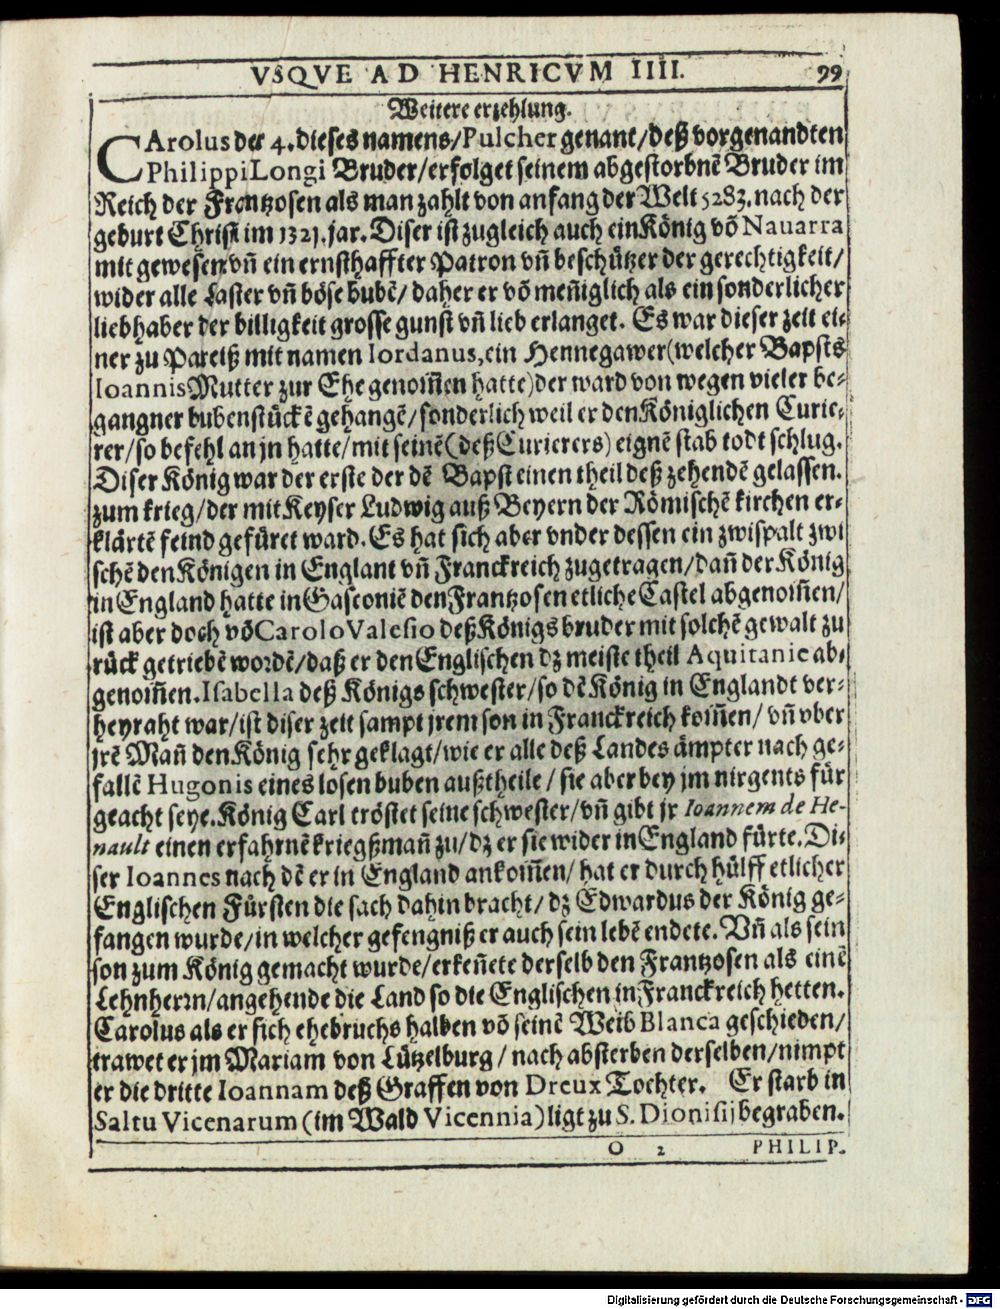 VSQVE AD HENRICVM IIII. 99
Weitere erzehlung.
CArolus der 4. dieses namens/Pulcher genant/deß vorgenandten
Philippi Longi Bruder/erfolget seinem abgestorbnē Bruder im
Reich der Frantzosen als man zahlt von anfang der Welt 5283. nach der
geburt Christi im 1321. jar. Diser ist zugleich auch ein König võ Nauarra
mit gewesen vñ ein ernsthaffter Patron vñ beschützer der gerechtigkeit/
wider alle Laster vñ böse bubē/ daher er võ meñiglich als ein sonderlicher
liebhaber der billigkeit grosse gunst vñ lieb erlanget. Es war dieser zeit ei-
ner zu Pareiß mit namen Iordanus, ein Hennegawer(welcher Bapsts
Ioannis Mutter zur Ehe genom̃en hatte)der ward von wegen vieler be-
gangner bubenstückē gehangē/sonderlich weil er den Königlichen Curie-
rer/so befehl an jn hatte/mit seinē(deß Curierers) eignē stab todt schlug.
Diser König war der erste der dē Bapst einen theil deß zehendē gelassen.
zum krieg/der mit Keyser Ludwig auß Beyern der Römischē kirchen er-
klärtē feind gefüret ward. Es hat sich aber vnder dessen ein zwispalt zwi
schē den Königen in Englant vñ Franckreich zugetragen/dañ der König
in England hatte in Gasconiē den Frantzosen etliche Castel abgenom̃en/
ist aber doch võ Carolo Valesio deß Königs bruder mit solchē gewalt zu
rück getriebē wordē/daß er den Englischen dz meiste theil Aquitanie ab-
genom̃en. Isabella deß Königs schwester/so dē König in Englandt ver-
heyraht war/ist diser zeit sampt jrem son in Franckreich kom̃en/ vñ vber
jrē Mañ den König sehr geklagt/wie er alle deß Landes ämpter nach ge-
fallē Hugonis eines losen buben außtheile/ sie aber bey jm nirgents für
geacht seye. König Carl tröstet seine schwester/vñ gibt jr Ioannem de He-
nault einen erfahrnē kriegßmañ zu/dz er sie wider in England fürte. Di-
ser Ioannes nach dē er in England ankom̃en/ hat er durch hülff etlicher
Englischen Fürsten die sach dahin bracht/ dz Edwardus der König ge-
fangen wurde/in welcher gefengniß er auch sein lebē endete. Vñ als sein
son zum König gemacht wurde/erkeñete derselb den Frantzosen als einē
Lehnherrn/angehende die Land so die Englischen in Franckreich hetten.
Carolus als er sich ehebruchs halben võ seinē Weib Blanca geschieden/
trawet er jm Mariam von Lützelburg/ nach absterben derselben/nimpt
er die dritte Ioannam deß Graffen von Dreux Tochter. Er starb in
Saltu Vicenarum (im Wald Vicennia) ligt zu S. Dionisij begraben.
O 2 PHILIP.
Digitalisierung gefördert durch die Deutsche Forschungsgemeinschaft - DFG